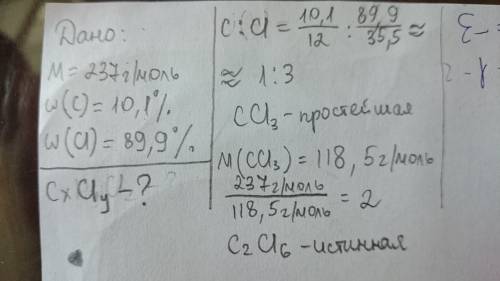 Дано:
M = 237 г/моль
ω(C) = 10,1%
ω(Cl) = 89,9%
CxCly - ?
C:Cl = 10,1/12 : 89,9/35,5 ≈
≈ 1:3
CCl₃ - простейшая
M(CCl₃) = 118,5 г/моль
237 г/моль / 118,5 г/моль = 2
C₂Cl₆ - истинная